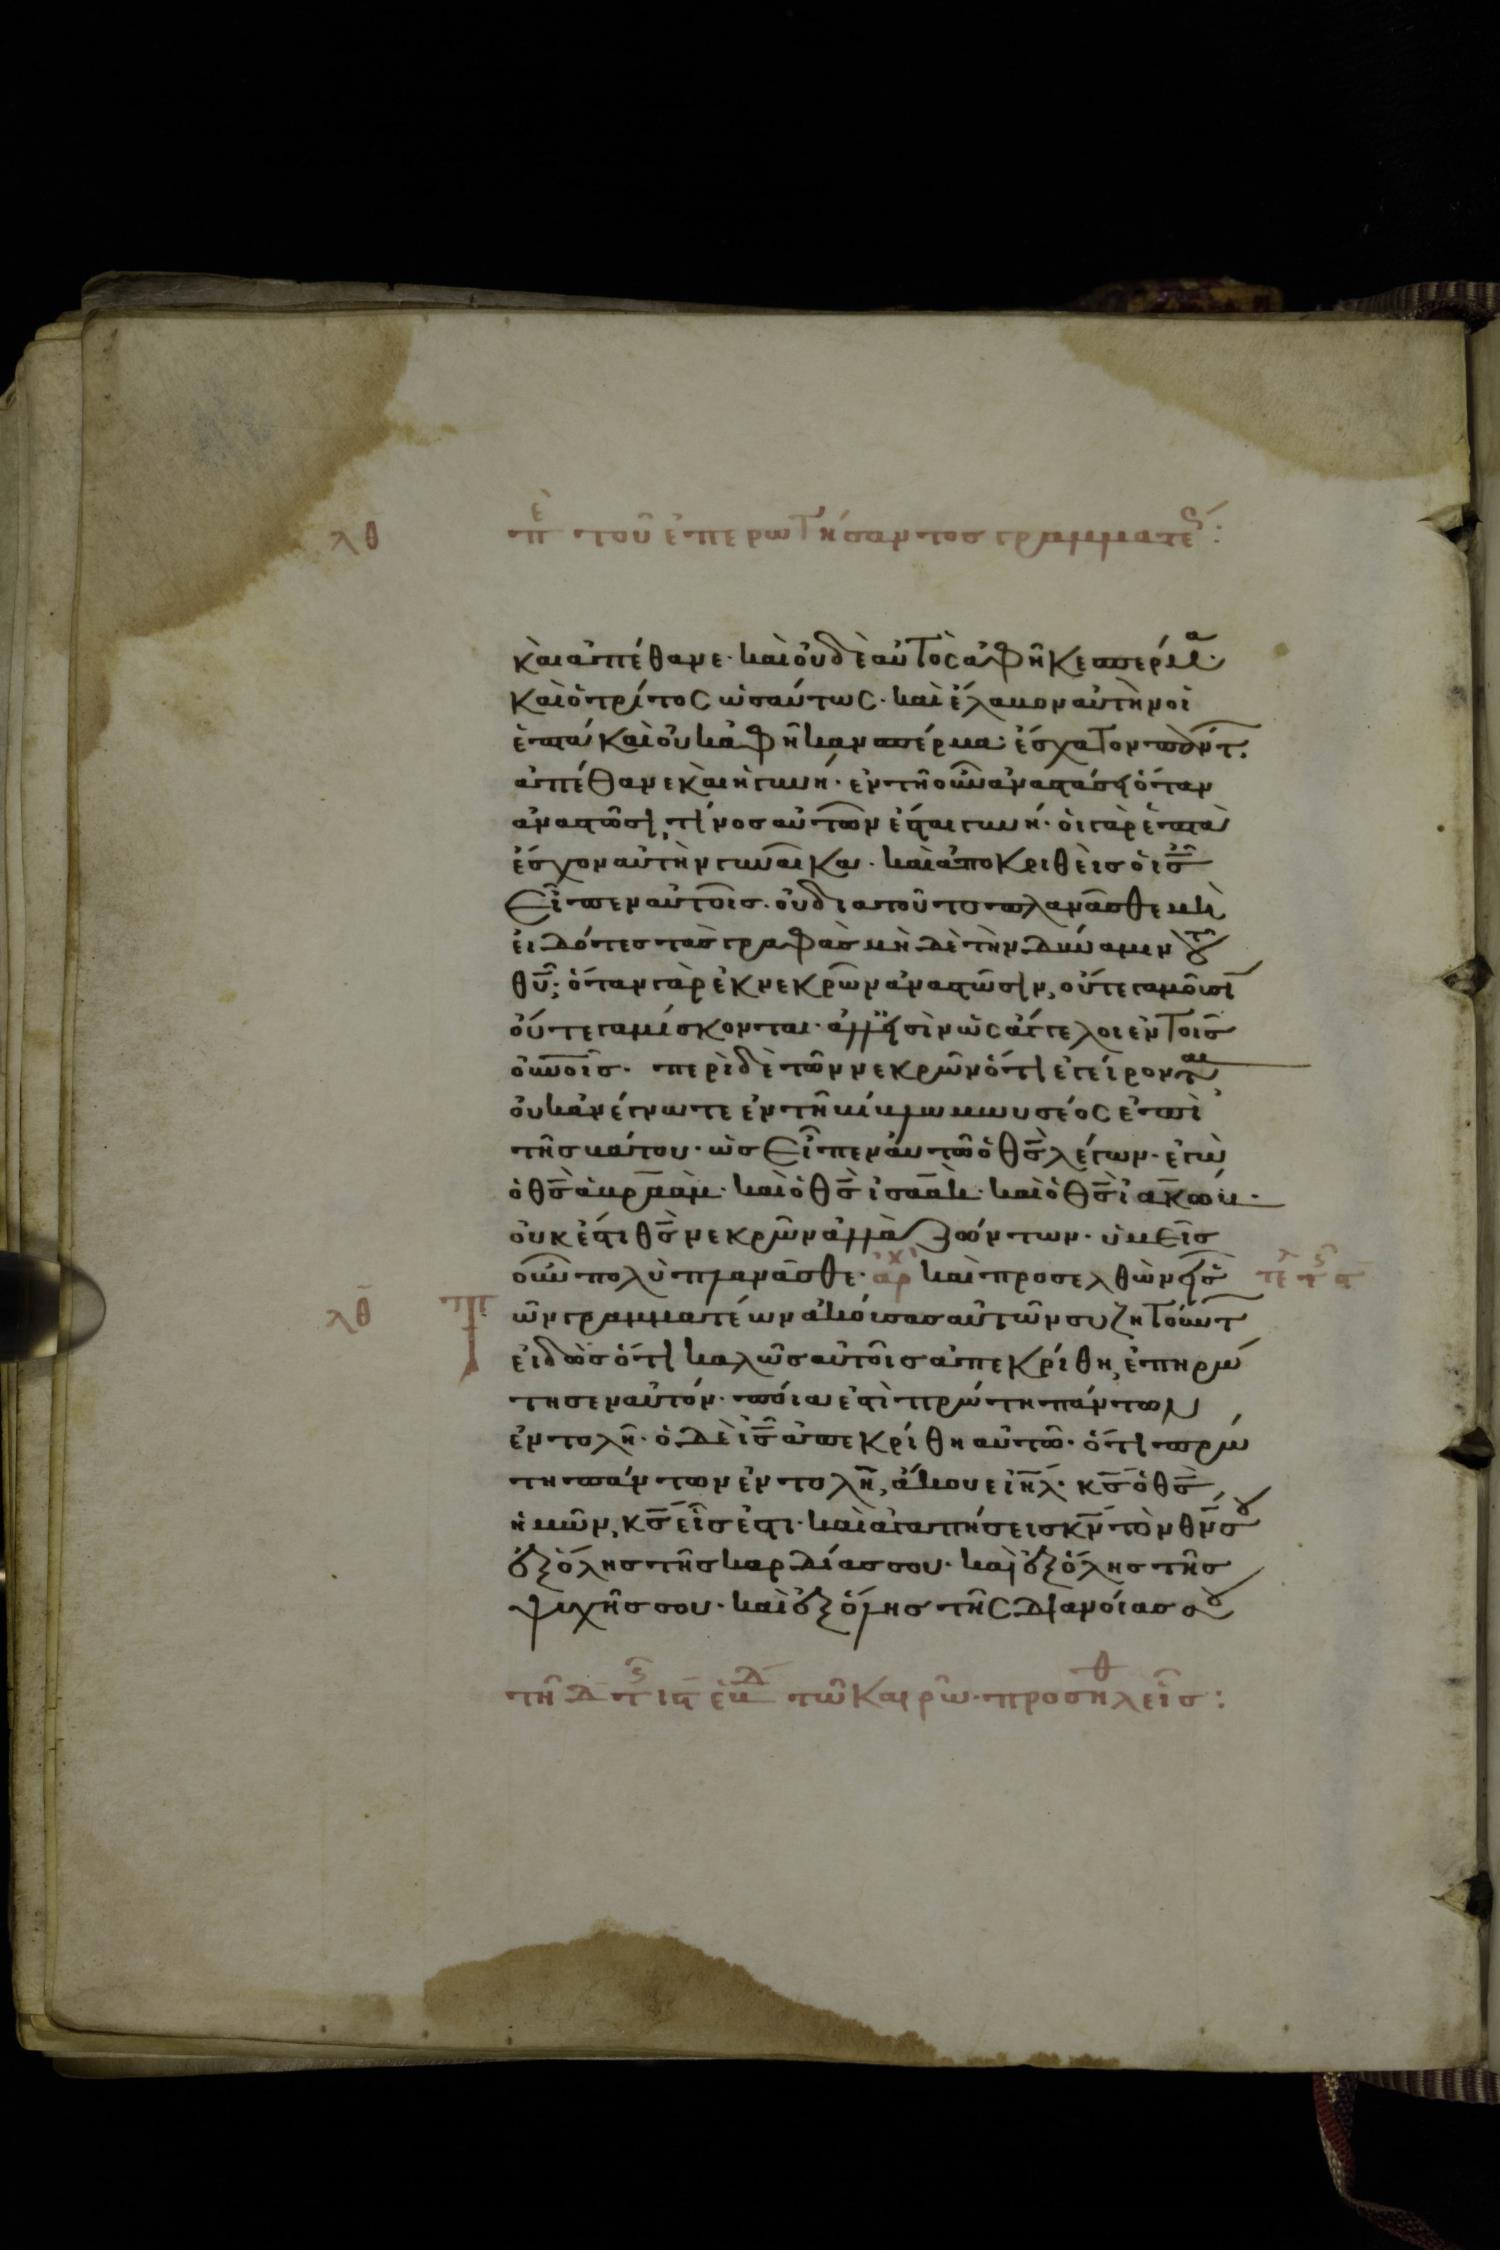 λθ πε τοῦ ἐπερωτήσαντος γραμματέως:
καὶ ἀπέθανε· καὶ οὐδὲ αὐτὸς ἀφῆκε σπέρμα·
καὶ ὁ τρίτος ὡσαύτως· καὶ ἔλαβον αὐτὴν οἱ
ἑπτὰ καὶ οὐκ ἀφῆκαν σπέρμα· ἐσχατον πάντ
ἀπέθανε καὶ ἡ γυνή· ἐν τῇ οὖν ἀναστάσει ὅταν
ἀναστῶσι, τίνος αὐτῶν ἔσται γυνή· οἱ γὰρ ἑπτὰ
ἔσχον αὐτὴν γυναῖκα· καὶ ἀποκριθεὶς ὁ ις
εἶπεν αὐτοῖς· οὐ διὰ τοῦτο πλανᾶσθε μὴ
εἰδότες τὰς γραφὰς μὴ δὲ τὴν δύναμιν τοῦ
θυ· ὅταν γὰρ ἐκ νεκρῶν ἀναστῶσιν, οὔτε γαμοῦσι
οὔτε γαμίσκονται· ἀλλ' εἰσὶν ὡς ἄγγελοι ἐν τοῖς
οὐνοις· περὶ δὲ τῶν νεκρῶν ὅτι ἐγείρονται
οὐκ ἀνέγνωτε ἐν τῇ βίβλω μωυσέος ἐπὶ
τῆς βάτου· ὡς εἶπεν αὐτῶ ὁ θς λέγων· ἐγὼ
ὁ θς ἁβρααμ· καὶ ὁ θς ἰσαακ· καὶ ὁ θς ἰακωβ·
οὐκ ἔστι θς νεκρῶν ἀλλὰ ζώντων· ὑμεῖς
οὖν πολὺ πλανᾶσθε· ἀρχ καὶ προσελθὼν εἷς τε τς
λθ τῶν γραμματέων ἀκούσας αὐτῶν συζητούντ
εἰδὼς ὅτι καλῶς αὐτοῖς ἀπεκρίθη, ἐπηρώ
τησεν αὐτόν· ποία ἐστὶ πρώτη πάντων
ἐντολή· ὁ δὲ ις ἀπεκρίθη αὐτῶ· ὅτι πρώ
τη πάντων ἐντολή, ἄκουε ιηλ· κς ὁ θς
ἡμῶν, κς εἷς ἐστι· καὶ ἀγαπήσεις κν τὸν θν σου
ἐξ ὅλης τῆς καρδίας σου· καὶ ἐξ ὅλης τῆς
ψυχῆς σου· καὶ ἐξ ὅλης τῆς διανοίας σου
τῇ δ τς ις ἑβδ τῶ καιρῶ· προσῆλθ εἷς: